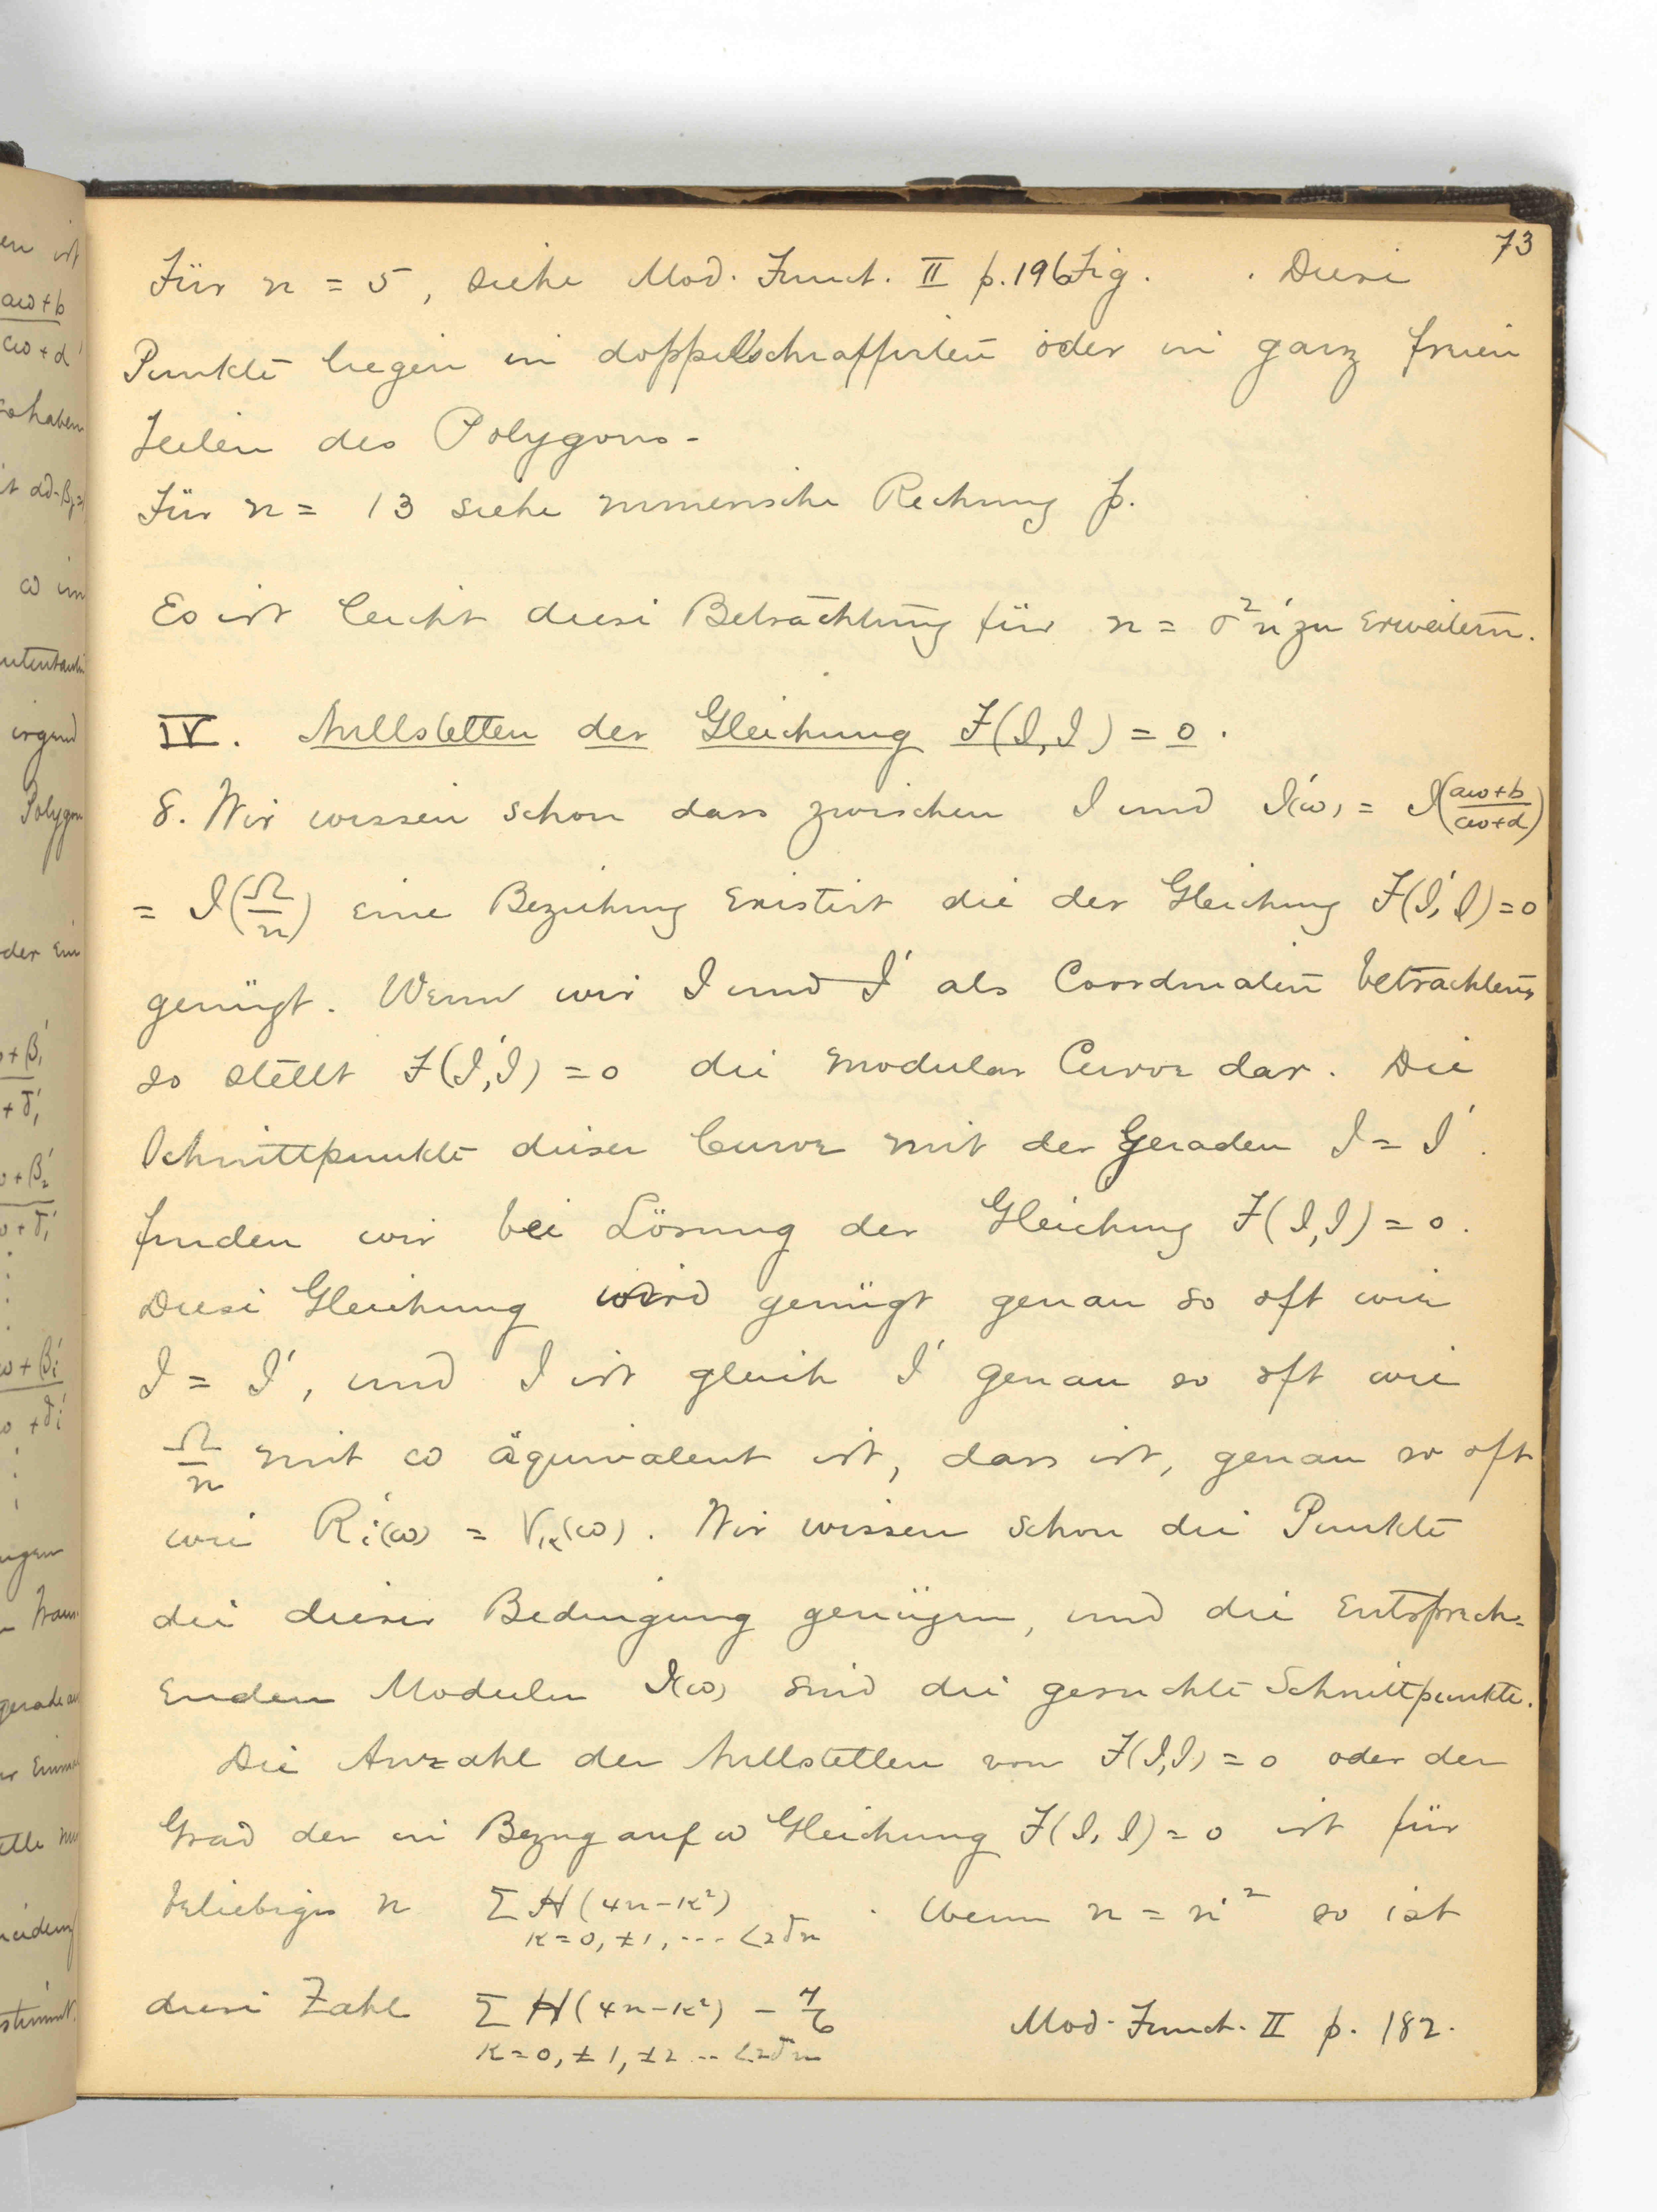 73
Für n = 5, siehe Mod. Funct. II p. 196 Fig.   . Diese
Punkte liegen in doppelschraffirten oder in ganz freien
Teilen des Polygons.
Für n = 13 siehe numerische Rechnung p.
Es ist leicht diese Betrachtung für n = σ²n' zu erweitern.
IV. Nullstellen der Gleichung F(J, J) = 0.
8. Wir wissen schon dass zwischen J und J'(ω) = J((aω+b)/(cω+d))
= J(Ω/n) eine Beziehung existirt die der Gleichung F(J', J) = 0
genügt. Wenn wir J und J' als Coordinaten betrachten,
so stellt F(J', J) = 0 die modular Curve dar. Die
Schnittpunkte dieser Curve mit der Geraden J = J'.
finden wir bei Lösung der Gleichung F(J, J) = 0.
Diese Gleichung wird genügt genau so oft wie
J = J', und J ist gleich J' genau so oft wie
Ω/n mit ω äquivalent ist, dass ist, genau so oft
wie R'i(ω) = Vκ(ω). Wir wissen schon die Punkte
die dieser Bedingung genügen, und die Entsprech=
enden Moduln J(ω) sind die gesuchte Schnittpunkte.
Die Anzahl der Nullstellen von F(J, J) = 0 oder der
Grad der in Bezug auf ω Gleichung F(J, J) = 0 ist für
beliebiges n Σ H(4n-κ²) . Wenn n = n'² so ist
κ = 0, ±1, --- <2√n
diese Zahl Σ H(4n-κ²) - 7/6 Mod. Funct. II p. 182.
κ = 0, ±1, ±2 -- <2√n
en ist
aω+b
cω+d'
ω im
irgend
Polygon
der ein